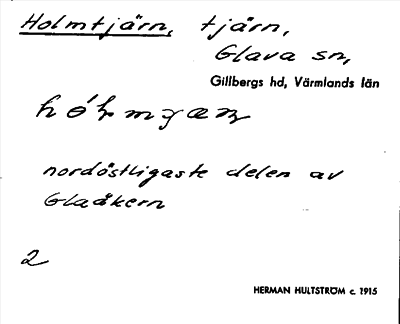 Holmtjärn, tjärn,
Glava sn,
Gillbergs hd, Värmlands län
nordöstligaste delen av
Glaåkern
2
HERMAN HULTSTRÖM c. 1915